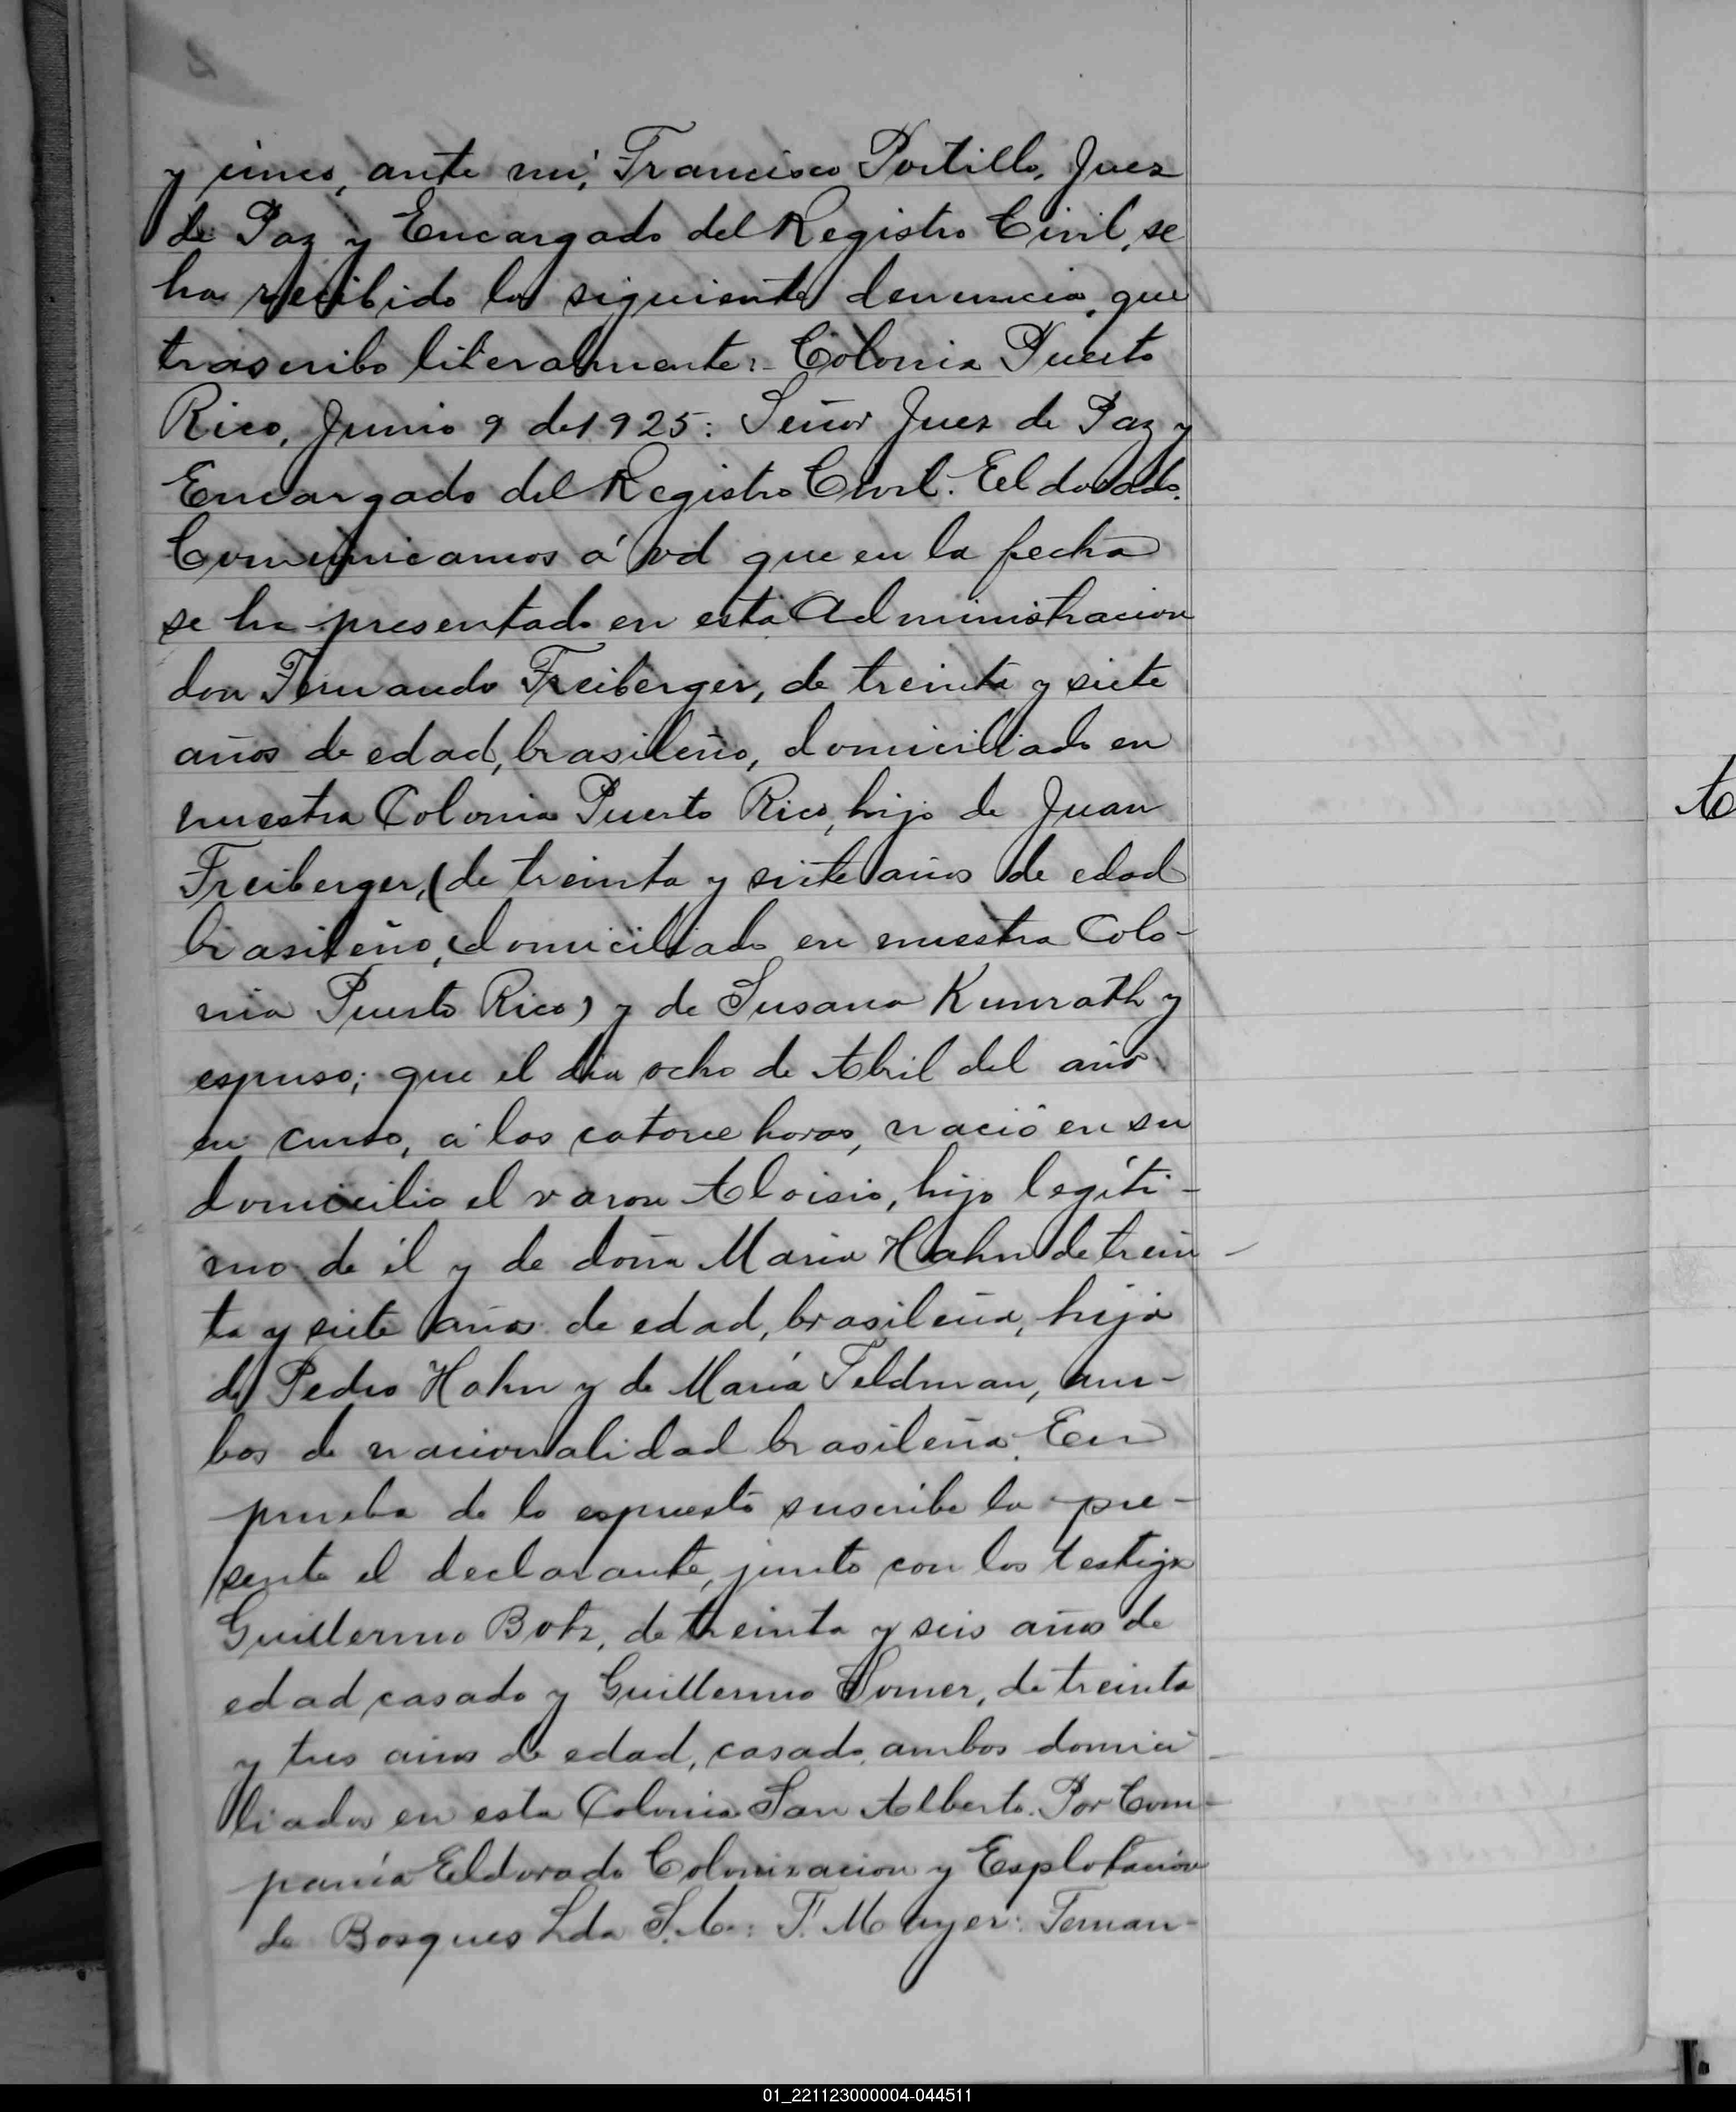 y cinco, ante mí, Francisco Portillo, Juez
de Paz y Encargado del Registro Civil, se
ha recibido la siguiente denuncia, que
trascribo literalmente: Colonia Puerto
Rico, Junio 9 de 1925: Señor Juez de Paz y
Encargado del Registro Civil. Eldorado.
Comunicamos á vd que en la fecha
se ha presentado en esta Administracion
don Fernando Freiberger, de treinta y siete
años de edad, brasileño, domiciliado en
nuestra Colonia Puerto Rico, hijo de Juan
Freiberger, (de treinta y siete años de edad
brasileño, domiciliado en nuestra Colo-
nia Puerto Rico) y de Susana Kunrath y
espuso; que el dia ocho de Abril del año
en curso, á las catorce horas, nació en su
domicilio el varon Aloisio, hijo legíti-
mo de él y de doña Maria Hahn de trein-
ta y siete años de edad, brasileña, hija
de Pedro Hahn y de María Feldman, am-
bos de nacionalidad brasileña. En
prueba de lo espuesto suscribe la pre-
sente el declarante, junto con los testigos
Guillermo Botz, de treinta y seis años de
edad casado y Guillermo Somer, de treinta
y tres años de edad, casado, ambos domici-
liados en esta Colonia San Alberto. Por Com-
pañía Eldorado Colonizacion y Esplotación
de Bosques Lda S.A.: F. Mayer: Fernan-
A
2
01_221123000004-044511